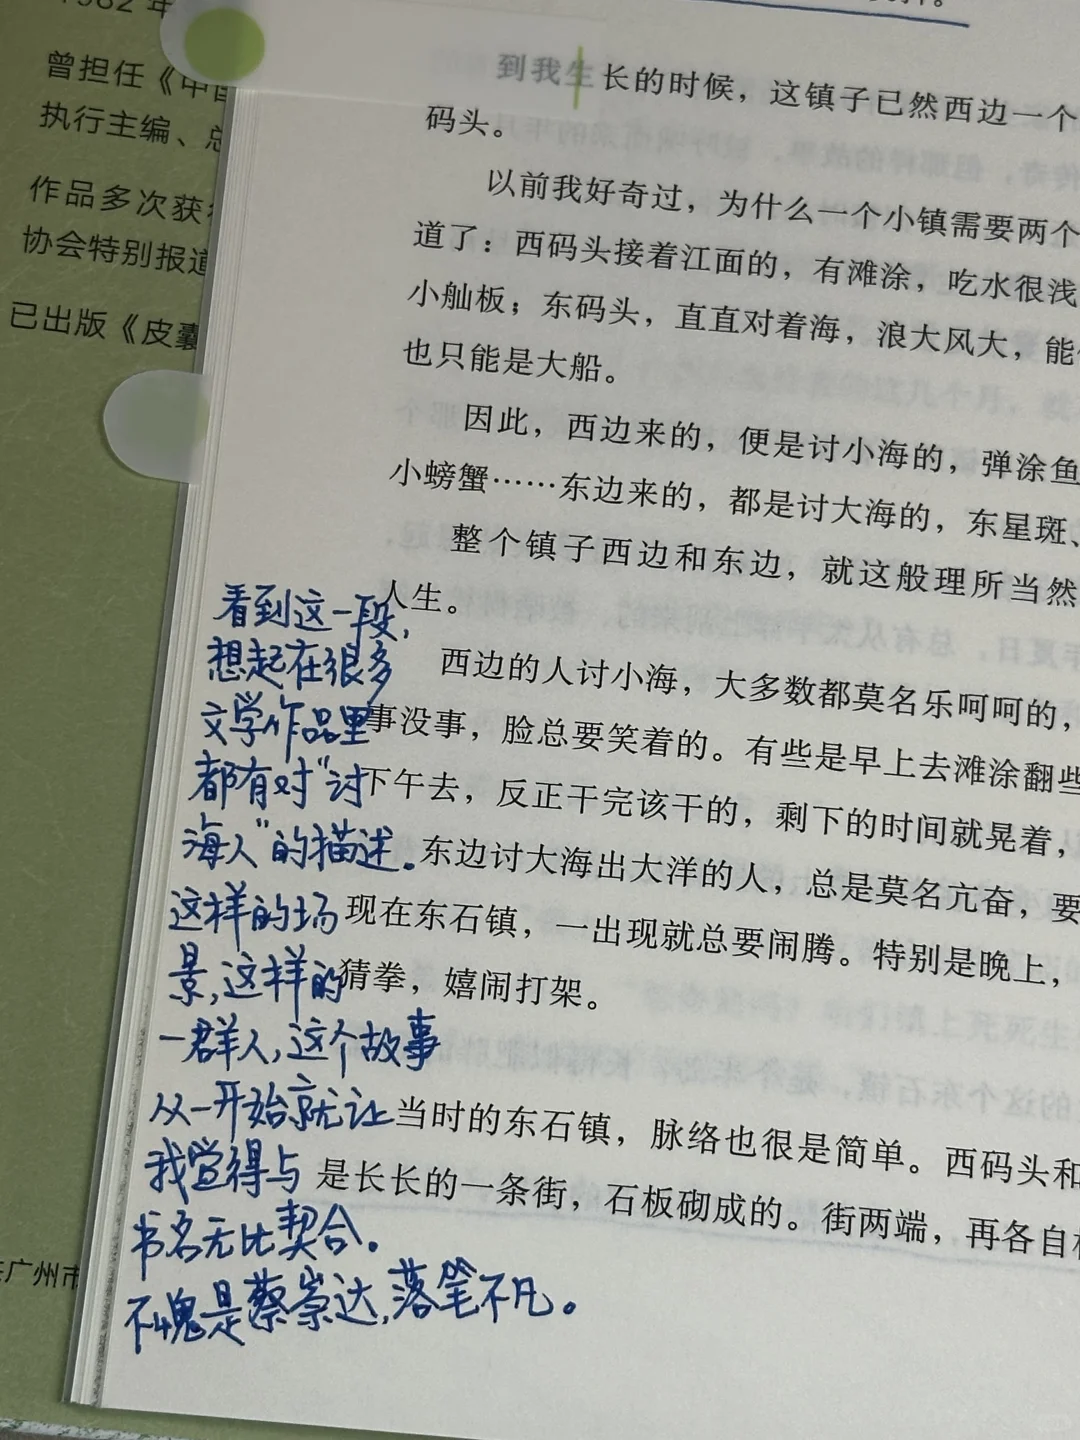 1982 年
曾担任《中国
执行主编、总
作品多次获
协会特别报道
已出版《皮囊
广州市
到我生长的时候，这镇子已然西边一个
码头。
以前我好奇过，为什么一个小镇需要两个
道了：西码头接着江面的，有滩涂，吃水很浅
小舢板；东码头，直直对着海，浪大风大，能
也只能是大船。
因此，西边来的，便是讨小海的，弹涂鱼
小螃蟹……东边来的，都是讨大海的，东星斑、
整个镇子西边和东边，就这般理所当然
人生。
西边的人讨小海，大多数都莫名乐呵呵的，
事没事，脸总要笑着的。有些是早上去滩涂翻些
下午去，反正干完该干的，剩下的时间就晃着，
东边讨大海出大洋的人，总是莫名亢奋，要
现在东石镇，一出现就总要闹腾。特别是晚上，
猜拳，嬉闹打架。
当时的东石镇，脉络也很是简单。西码头和
是长长的一条街，石板砌成的。街两端，再各自
看到这一段，
想起在很多
文学作品里
都有对“讨
海人”的描述。
这样的场
景，这样的
一群人，这个故事
从一开始就让
我觉得与
书名无比契合。
不愧是蔡崇达，落笔不凡。